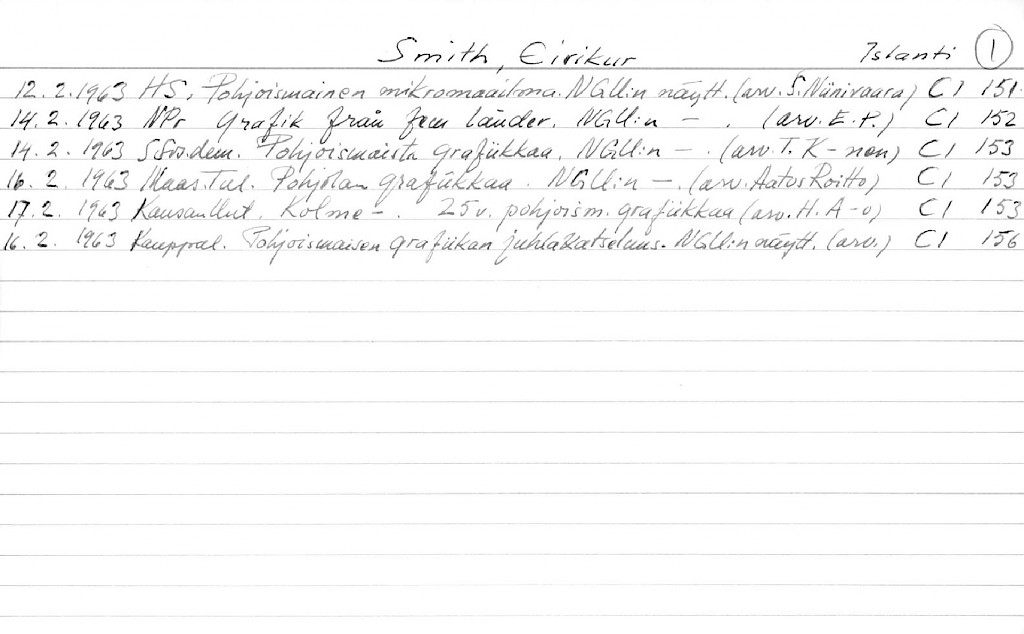 Smith, Eirikur Islanti 1
12.2.1963 HS, Pohjoismainen mikromaailma. NGll:n näytt. (arv. S. Niinivaara) C1 151.
14.2.1963 NPr Grafik från fem länder. NGll:n — . (arv. E.P.) C1 152
14.2.1963 SSos.dem. Pohjoismaista grafiikkaa, NGll:n — . (arv. T. K-nen) C1 153
16.2.1963 Maas.Tul. Pohjolan grafiikkaa. NGll:n — . (arv. Aatos Roitto) C1 153
17.2.1963 Kansan Uut. Kolme — . 25 v. pohjoism. grafiikkaa (arv. H. A-o) C1 153
16.2.1963 Kauppal. Pohjoismaisen grafiikan juhlakatselmus. NGll:n näytt. (arv.) C1 156